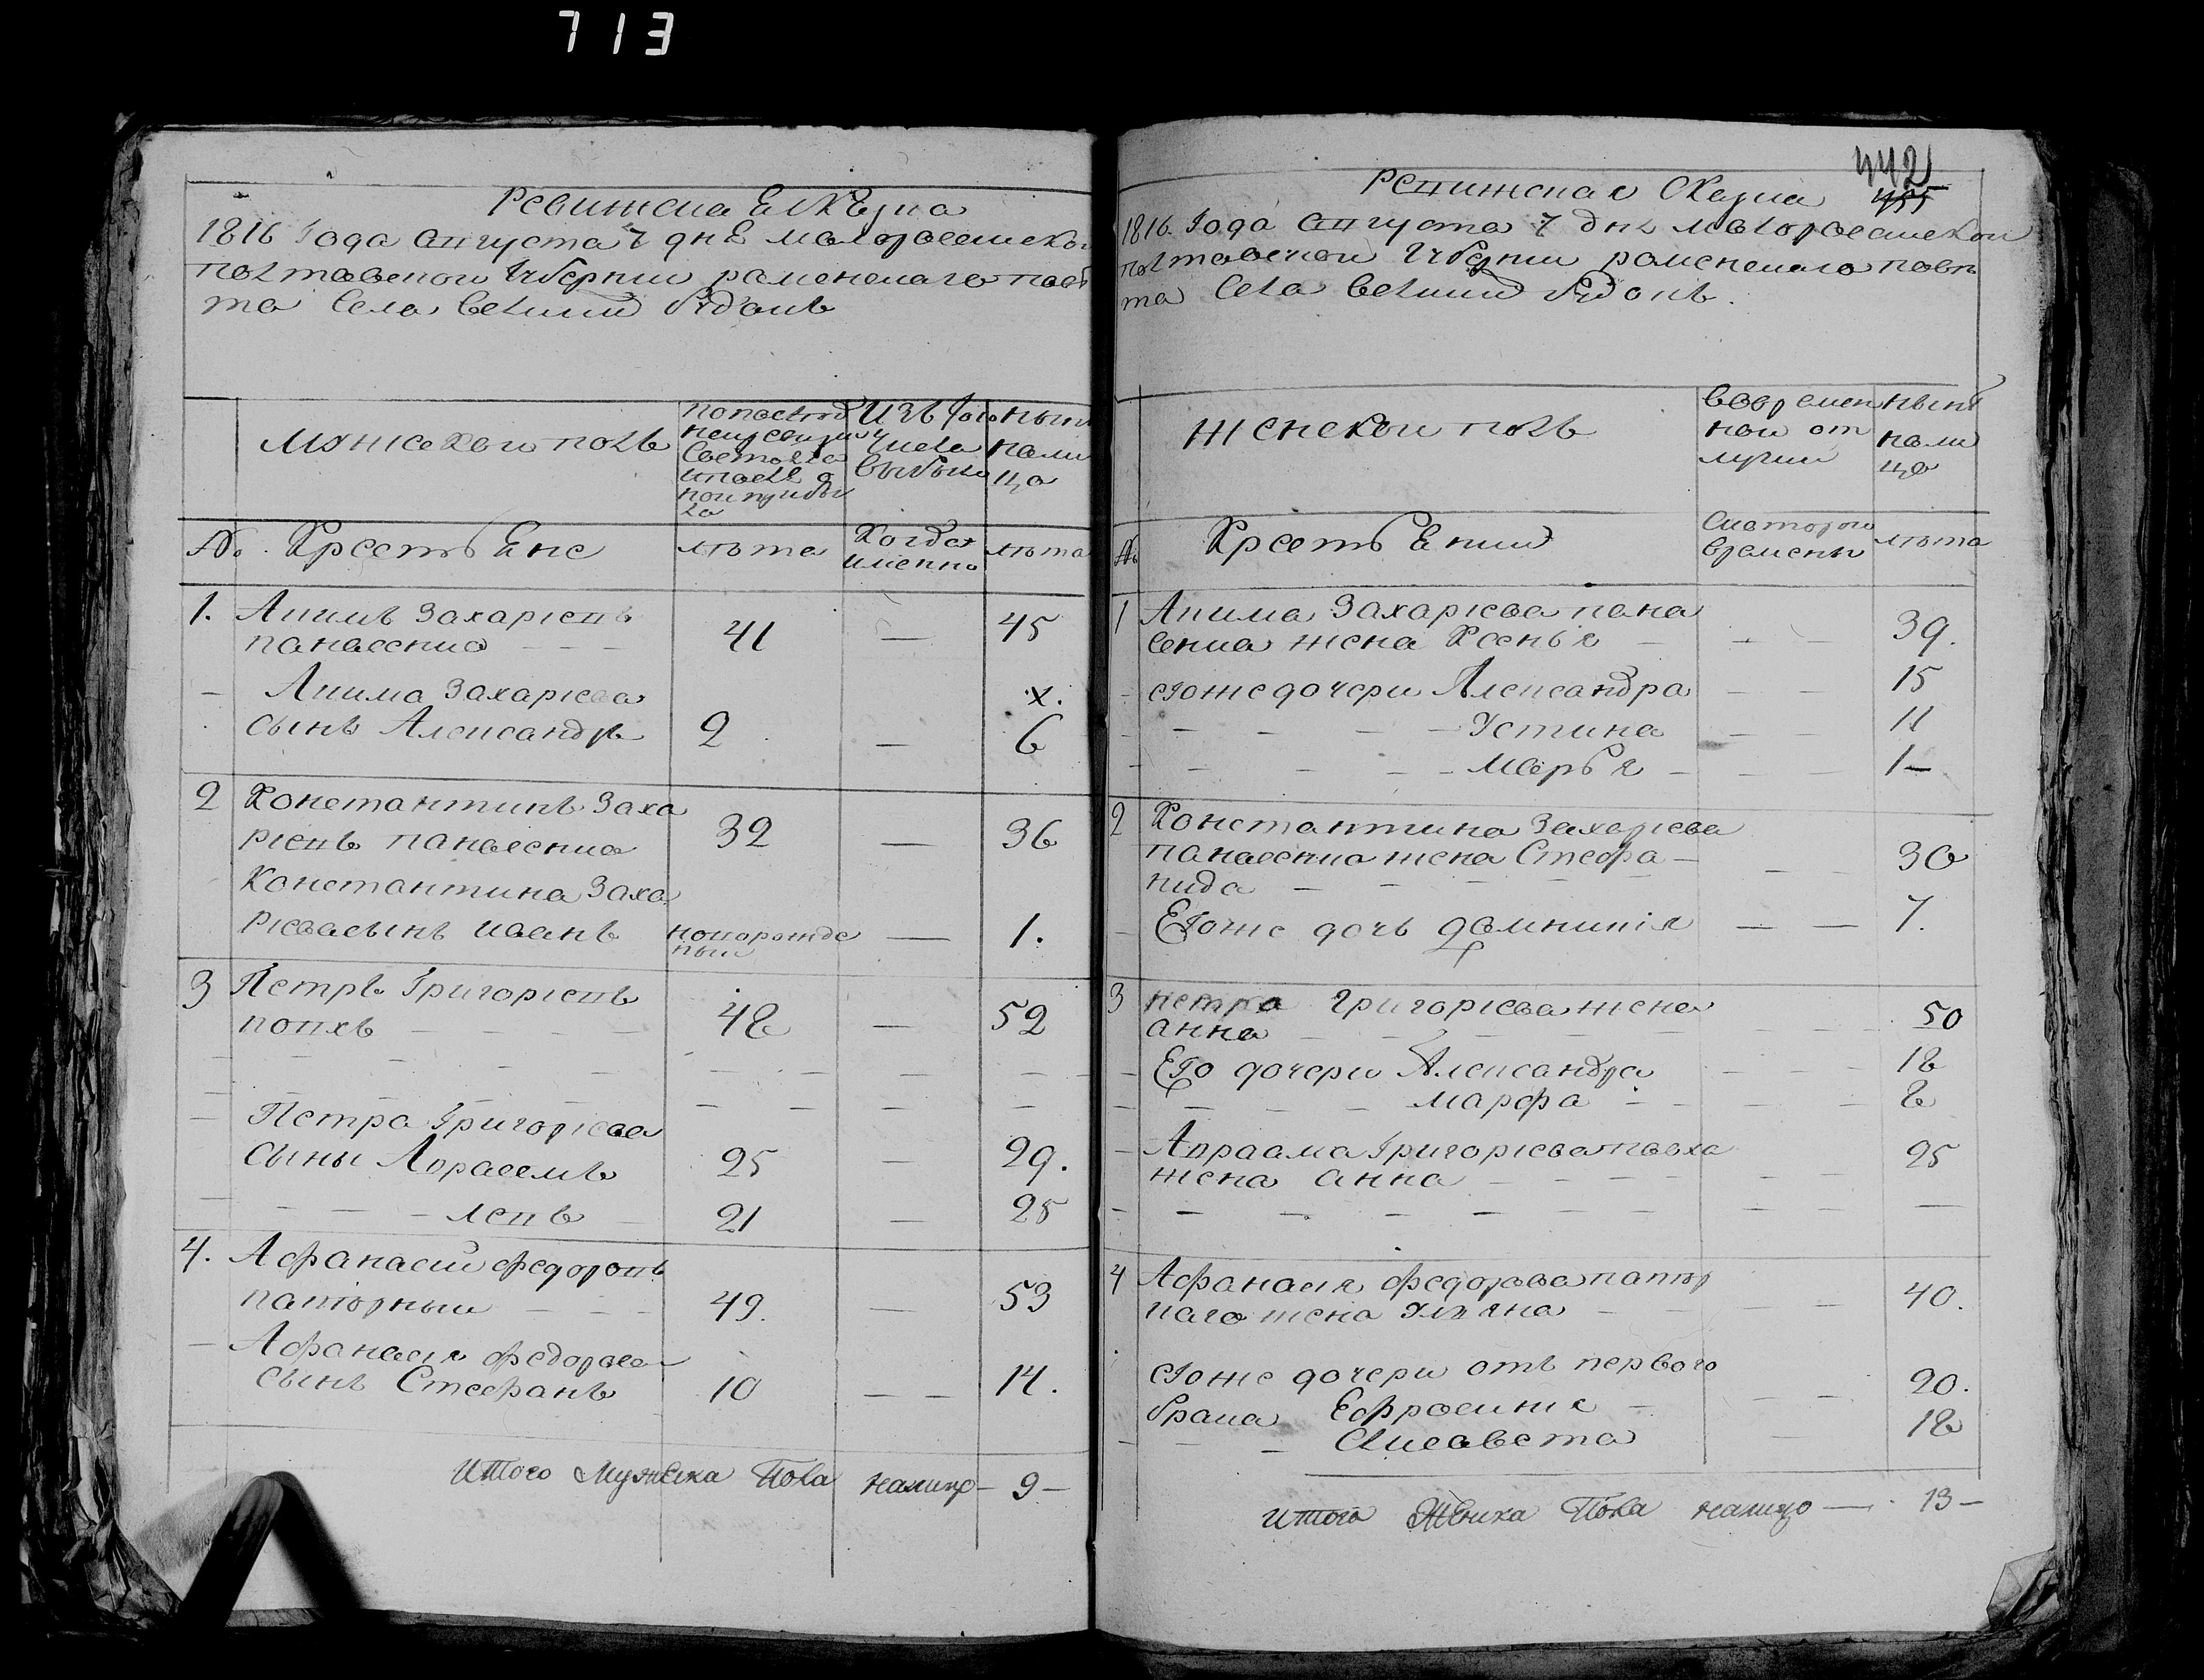 713
Ревижская Скаска
1816 Года августа 7 дня малоросииской
полтавской Губернии роменскаго повѣ
та Села Великий Бѵдокъ
мужеской полъ
по последней ревизии состояло и после оной прибыло
Изъ того числа выбыло
ныне налицо
№. Крестьяне
лѣта
Когда именно
лѣта
1. Якимъ Захариевъ 41 — 45
панаского
— Якима Захариева х.
сынъ Александръ 2 — 6
2 Константинъ Заха
риевъ панаского 32 — 36
Константина Заха
риева сынъ иванъ новорожденый — 1.
3 Петръ Григориевъ
попхъ 48 — 52
Петра Григориева
сыны Авраамъ 25 — 29.
левъ 21 — 25
4. Афанасий федоровъ
папорный 49. — 53
— Афанасия федорова
сынъ Стефанъ 10 — — 14.
Итого Мужеска Пола налицо — 9 —
442
455
Ревижская Скаска
1816 Года августа 7 дня малоросииской
полтавской Губернии роменскаго повѣ
та Села Великий Бѵдокъ.
женской полъ
во времен
ной от
лучки
ныне
нали
цо
№ Крестьянки
С котораго
времены
лѣта
1 Якима Захариева пана
ского жена Ксенья 39.
егоже дочери Александра 15
Устина 11
Марья 1 —
2 Константина Захариева
панаского жена Стефа
нида 30
Егоже дочь домникия — — 7.
3 петра Григориева жена
анна 50
Его дочери Александра 18
марфа 8
— Авраама Григориева попха 25
жена анна
4 Афанасия федорова папор
наго жена Улияна 40.
егоже дочери отъ первого
брака Ефросиния 20.
Елисавета 18
Итого Женска Пола налицо — 13 —